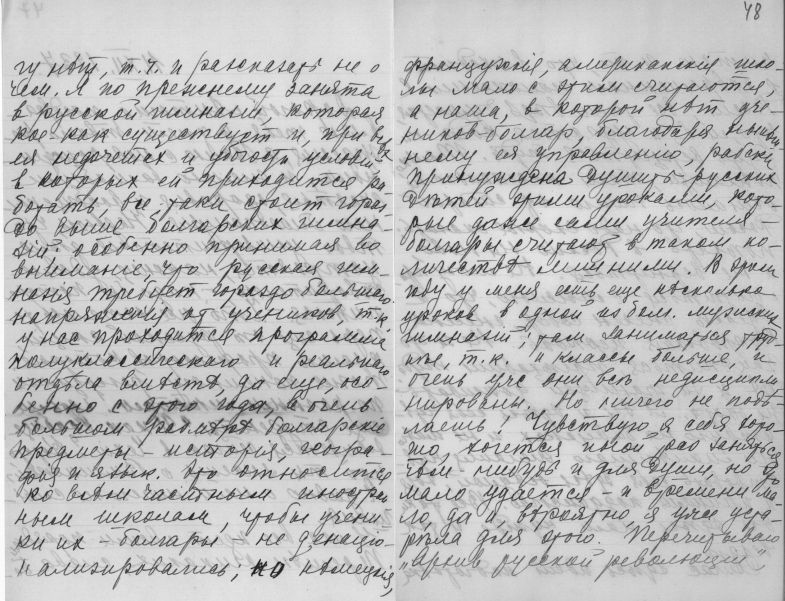 гу нѣт, т.ч. и разсказать не о
чем. Я по прежнему занята
в русской гимназіи, которая
кое как существует и, при всѣх
ея недочетах и убогости условій
в которых ей приходится ра-
ботать, все таки стоит гораз-
до выше болгарских гимна-
зій; особенно принимая во
вниманіе что русская гим-
назія требует гораздо большаго
напряженія от учеников, т.к.
у нас проходится программа
полуклассическаго и реальнаго
отдѣла вмѣстѣ, да еще, осо-
бенно с этого года, в очень
большом болгарские
предметы – исторія, геогра-
фія и язык. Это относится
ко всѣм частным иностран-
ным школам, чтобы учени-
ки их – болгары – не денаціо-
нализировались; но нѣмецкія,
48
французскія, американскія шко-
лы мало с этим считаются,
а наша, в которой нѣт уче-
ников-болгар, благодаря нынѣш-
нему ея управленію, рабски
принуждена душить русских
дѣтей этими уроками, кото-
рые даже сами учителя –
болгары считают в таком ко-
личествѣ лишними. В этом
году у меня есть еще нѣсколько
уроков в одной из бол. мужских
гимназій; там заниматься труд-
нѣе, т.к. и классы больше, и
очень уж они всѣ недисципли-
нированы. Но ничего не подѣ-
лаешь! Чувствую я себя хоро-
шо, хочется иной раз заняться
чѣм-нибудь и для души, но это
мало удается – и времени ма-
ло, да и, вѣроятно, я уже уста-
рѣла для этого. Перечитываю
"Архив русской революціи",